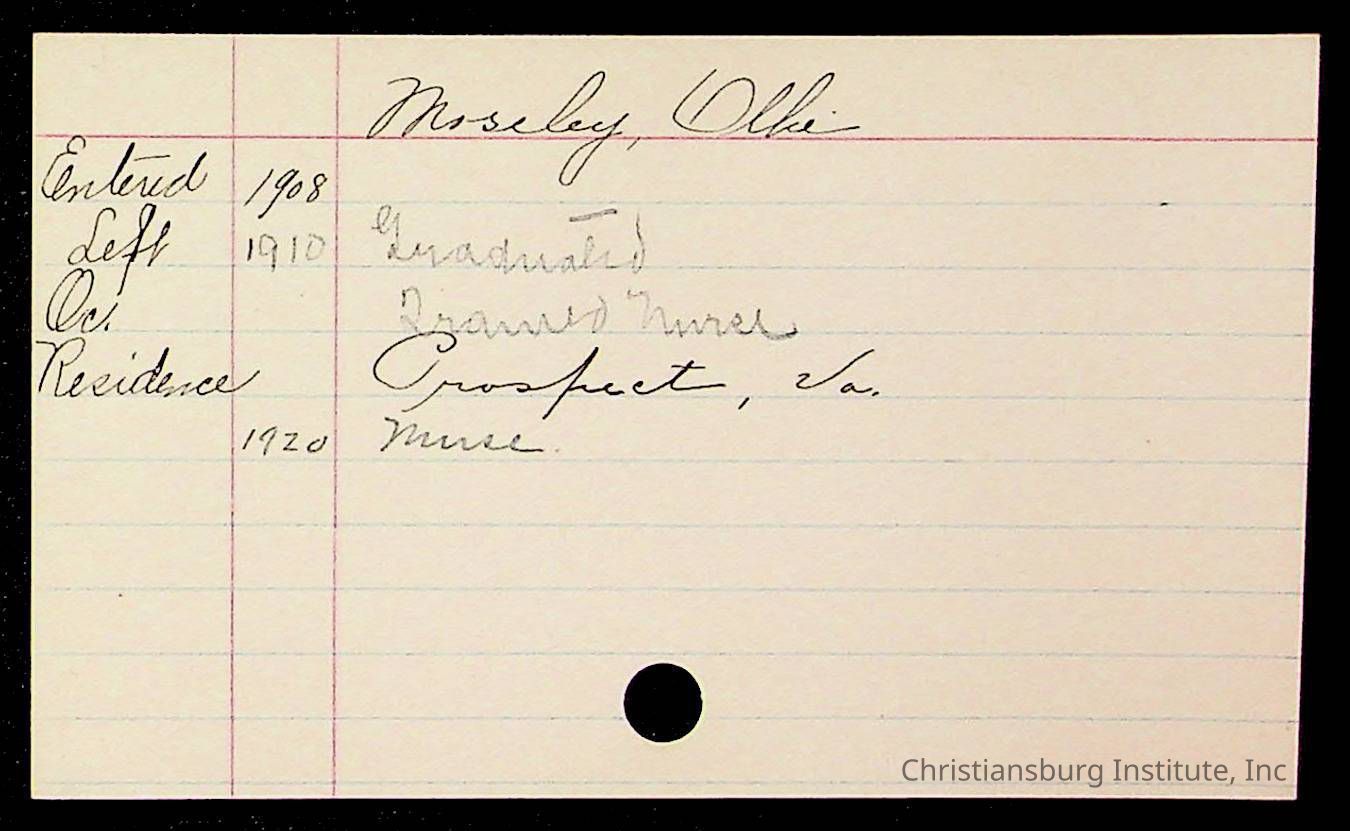 Moseley, Ollie
Entered 1908
Left 1910 Graduated
Oc. Trained Nurse
Residence Prospect, Va.
1920 Nurse
Christiansburg Institute, Inc